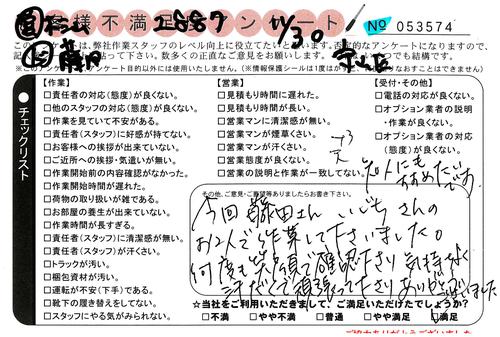 お客様不満足アンケート
2887
11/30
№ 053574
このアンケートは、弊社作業スタッフのレベル向上に役立てたいと
※このアンケート目的以外には使用いたしません。
チェックリスト
【作業】
□責任者の対応(態度)が良くない。
□他のスタッフの対応(態度)が良くない。
□作業を見ていて不安がある。
□責任者(スタッフ)に好感が持てない。
□お客様への挨拶が出来ていない。
□ご近所への挨拶・気遣いが無い。
□作業開始前の内容確認がなかった。
□作業開始時間が遅れた。
□荷物の取り扱いが雑である。
□お部屋の養生が出来ていない。
□作業時間が長すぎる。
□責任者(スタッフ)に清潔感が無い。
□責任者(スタッフ)が汗くさい。
□トラックが汚い。
□梱包資材が汚い。
□運転が不安(下手)である。
□靴下の履き替えをしてない。
□スタッフにやる気がみられない。
【営業】
□見積もり時間に遅れた。
□見積もり時間が長い。
□営業マンに清潔感が無い。
□営業マンが煙草くさい。
□営業マンが汗くさい。
□営業態度が良くない。
□営業の説明と作業が一致してない。
【受付・その他】
□電話の対応が良くない。
□オプション業者の説明
・作業が良くない。
□オプション業者の対応
(態度)が良くない。
知人にも
すすめたい
です。
その他、ご意見・ご要望等ありましたらお書き下さい。
今回 藤田さん いいぢさんの
お2人で作業して下さいました。
何度も笑顔で確認下さり 気持ちよく
汗だくで頑張って下さり ありがとうございました
☆当社をご利用いただきまして、ご満足いただけたでしょうか?
□不満 □やや不満 □普通 □やや満足 ☑満足
ご協力ありがとうございました